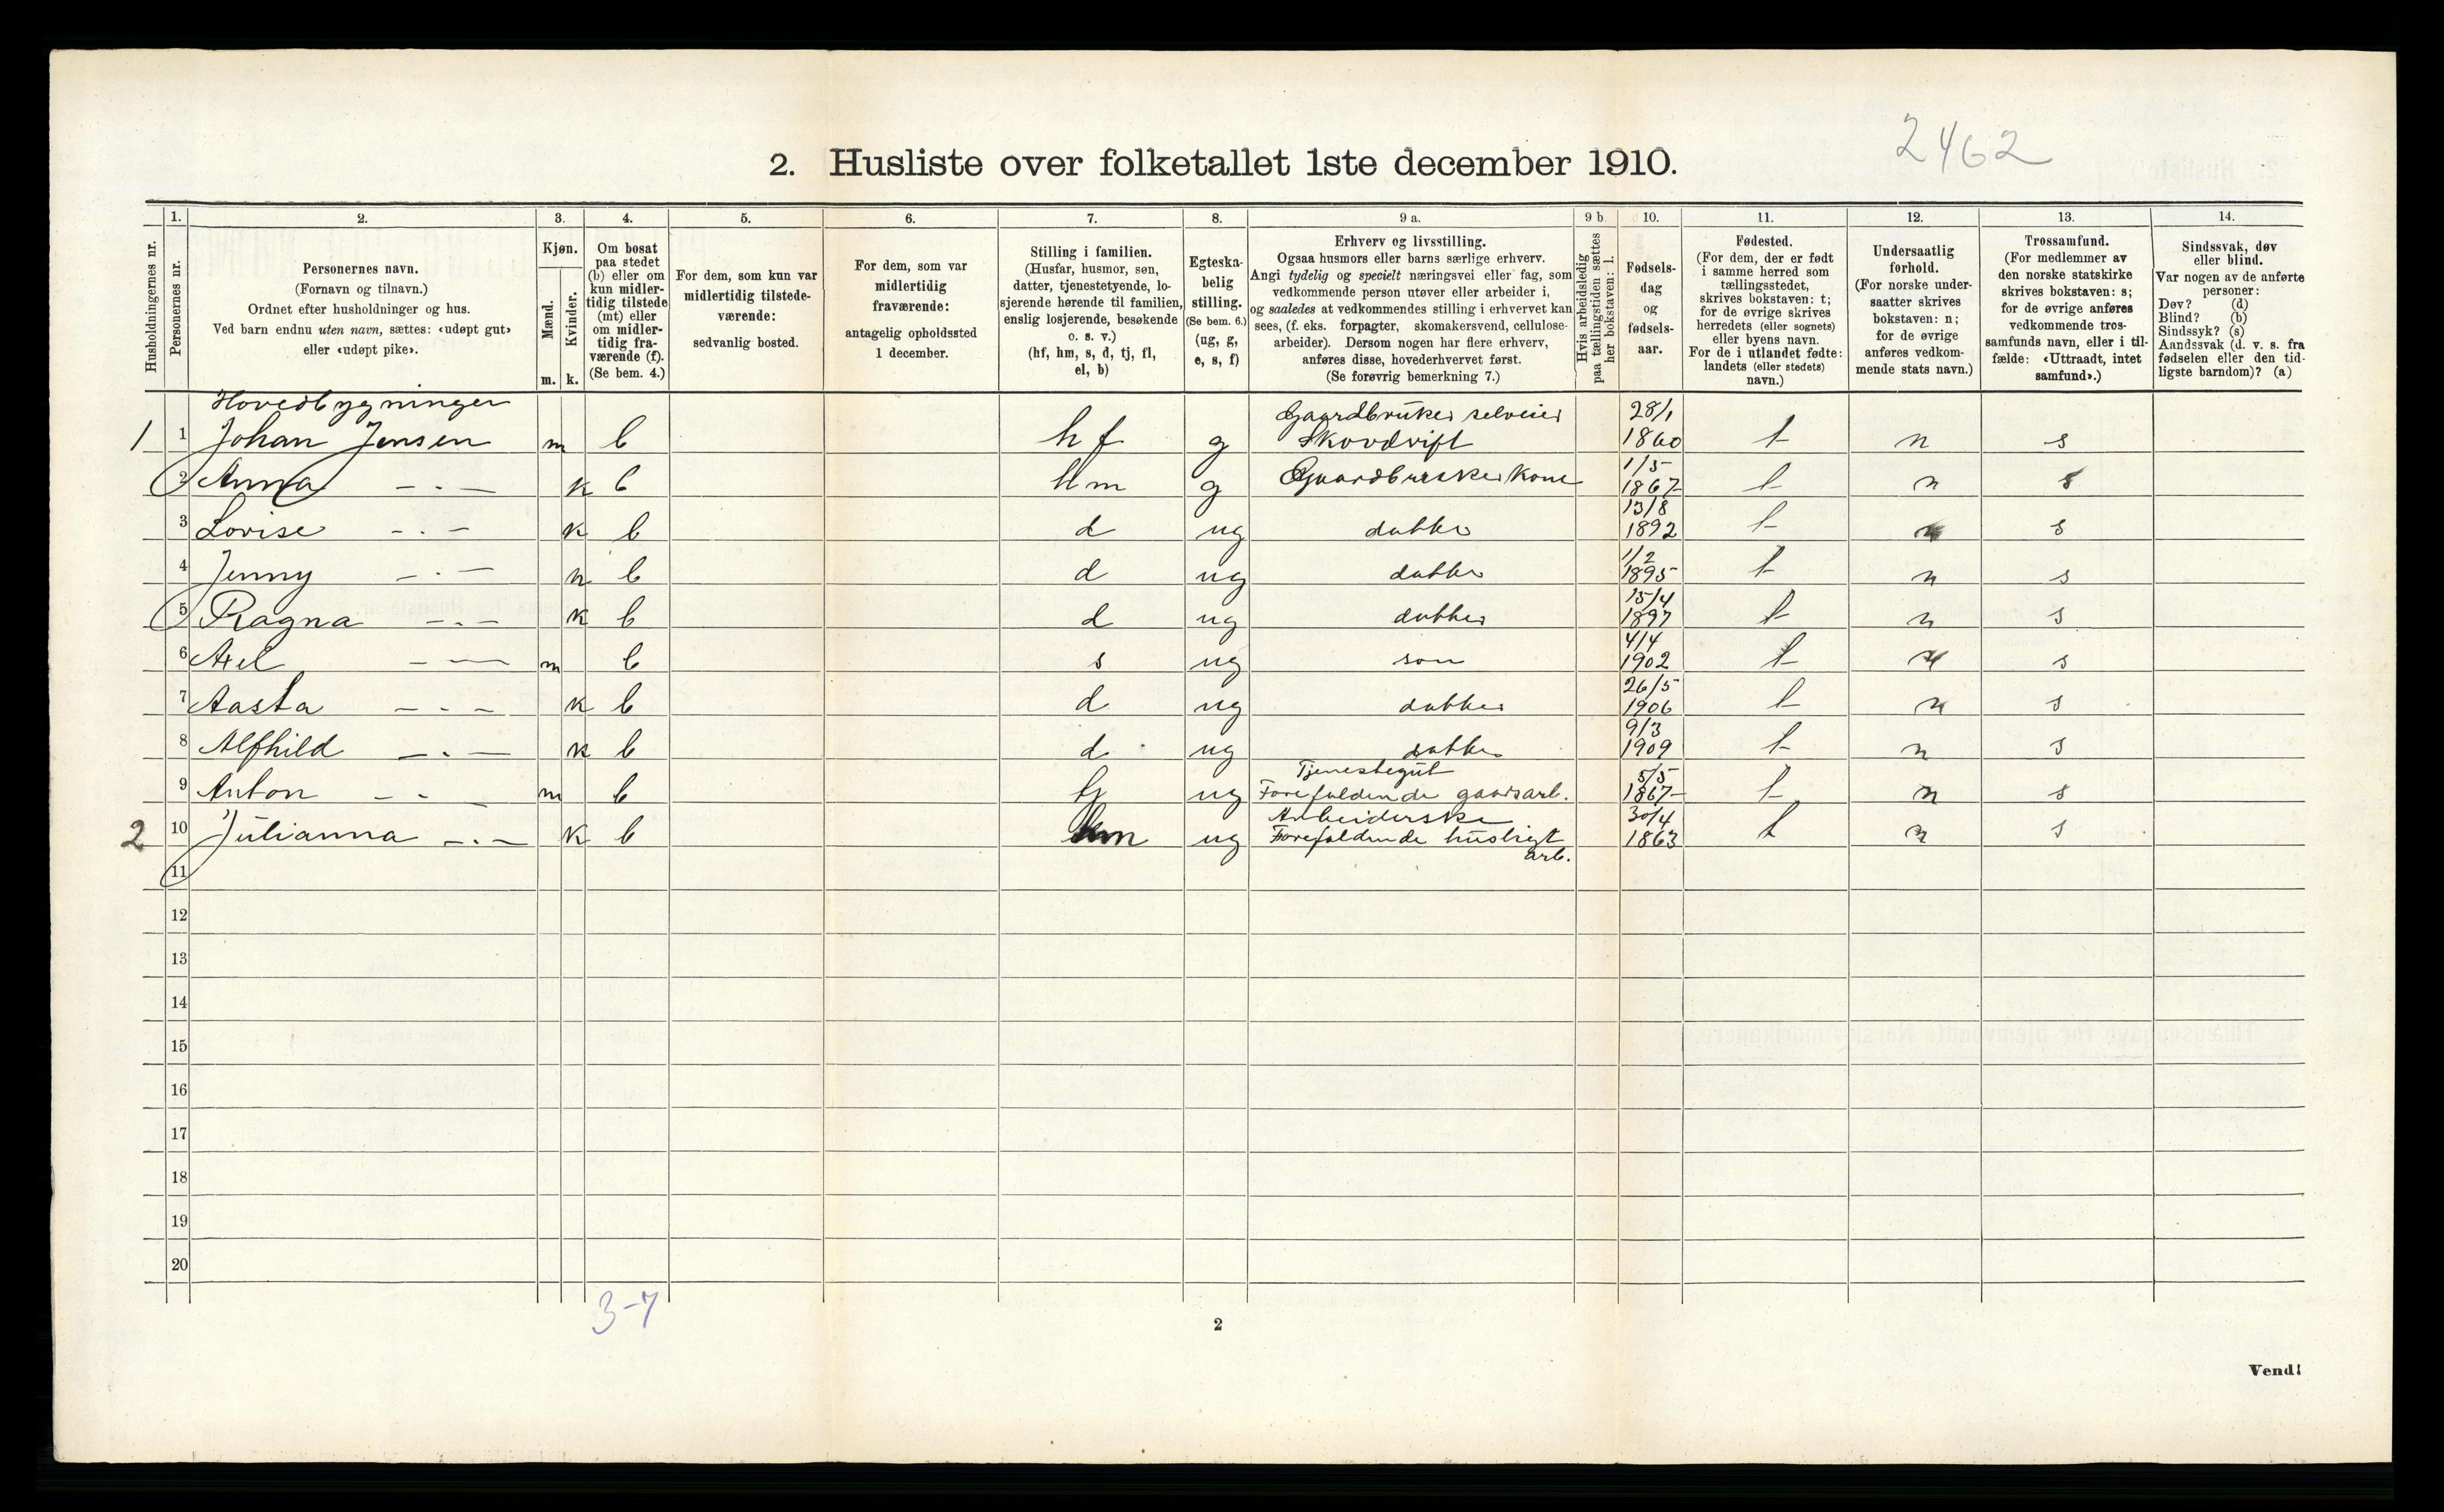 2462
2. Husliste over folketallet 1ste december 1910.
1. 2. 3. 4. 5. 6. 7. 8. 9 a. 9 b. 10. 11. 12. 13. 14.
Husholdningernes nr.
Personernes nr.
Personernes navn.
(Fornavn og tilnavn.)
Ordnet efter husholdninger og hus.
Ved barn endnu uten navn, sættes: «udøpt gut»
eller «udøpt pike».
Kjøn.
Mænd.
Kvinder.
m. k.
Om bosat
paa stedet
(b) eller om
kun midler-
tidig tilstede
(mt) eller
om midler-
tidig fra-
værende (f).
(Se bem. 4.)
For dem, som kun var
midlertidig tilstede-
værende:
sedvanlig bosted.
For dem, som var
midlertidig
fraværende:
antagelig opholdssted
1 december.
Stilling i familien.
(Husfar, husmor, søn,
datter, tjenestetyende, lo-
sjerende hørende til familien,
enslig losjerende, besøkende
o. s. v.)
(hf, hm, s, d, tj, fl,
el, b)
Egteska-
belig
stilling.
(Se bem. 6.)
(ug, g,
e, s, f)
Erhverv og livsstilling.
Ogsaa husmors eller barns særlige erhverv.
Angi tydelig og specielt næringsvei eller fag, som
vedkommende person utøver eller arbeider i,
og saaledes at vedkommendes stilling i erhvervet kan
sees, (f. eks. forpagter, skomakersvend, cellulose-
arbeider). Dersom nogen har flere erhverv,
anføres disse, hovederhvervet først.
(Se forøvrig bemerkning 7.)
Hvis arbeidsledig
paa tællingstiden sættes
her bokstaven: l.
Fødsels-
dag
og
fødsels-
aar.
Fødested.
(For dem, der er født
i samme herred som
tællingsstedet,
skrives bokstaven: t;
for de øvrige skrives
herredets (eller sognets)
eller byens navn.
For de i utlandet fødte:
landets (eller stedets)
navn.)
Undersaatlig
forhold.
(For norske under-
saatter skrives
bokstaven: n;
for de øvrige
anføres vedkom-
mende stats navn.)
Trossamfund.
(For medlemmer av
den norske statskirke
skrives bokstaven: s;
for de øvrige anføres
vedkommende tros-
samfunds navn, eller i til-
fælde: «Uttraadt, intet
samfund».)
Sindssvak, døv
eller blind.
Var nogen av de anførte
personer:
Døv? (d)
Blind? (b)
Sindssyk? (s)
Aandssvak (d. v. s. fra
fødselen eller den tid-
ligste barndom)? (a)
Hovedbygninger Gaardbruker selveier 28/1
1 1 Johan Jensen m b hf g Skovdrift 1860 t n s
2 Anna - . - k b hm g Gaardbrukerkone 1/5 1867 t n s
3 Lovise - . - k b d ug datter 13/8 1892 t n s
4 Jenny - . - k b d ug datter 1/2 1895 t n s
5 Ragna - . - k b d ug datter 15/4 1897 t n s
6 Axel - — m b s ug søn 4/4 1902 t n s
7 Aasta - - - k b d ug datter 26/5 1906 t n s
8 Alfhild - . - k b d ug datter 9/3 1909 t n s
Tjenestegut
9 Anton - - - m b tj ug Forefaldende gaardsarb. 5/5 1867 t n s
Arbeiderske
2 10 Julianna - . - k b hm ug Forefaldende husligt arb. 30/4 1863 t n s
11
12
13
14
15
16
17
18
19
20
3-7
2
Vend!